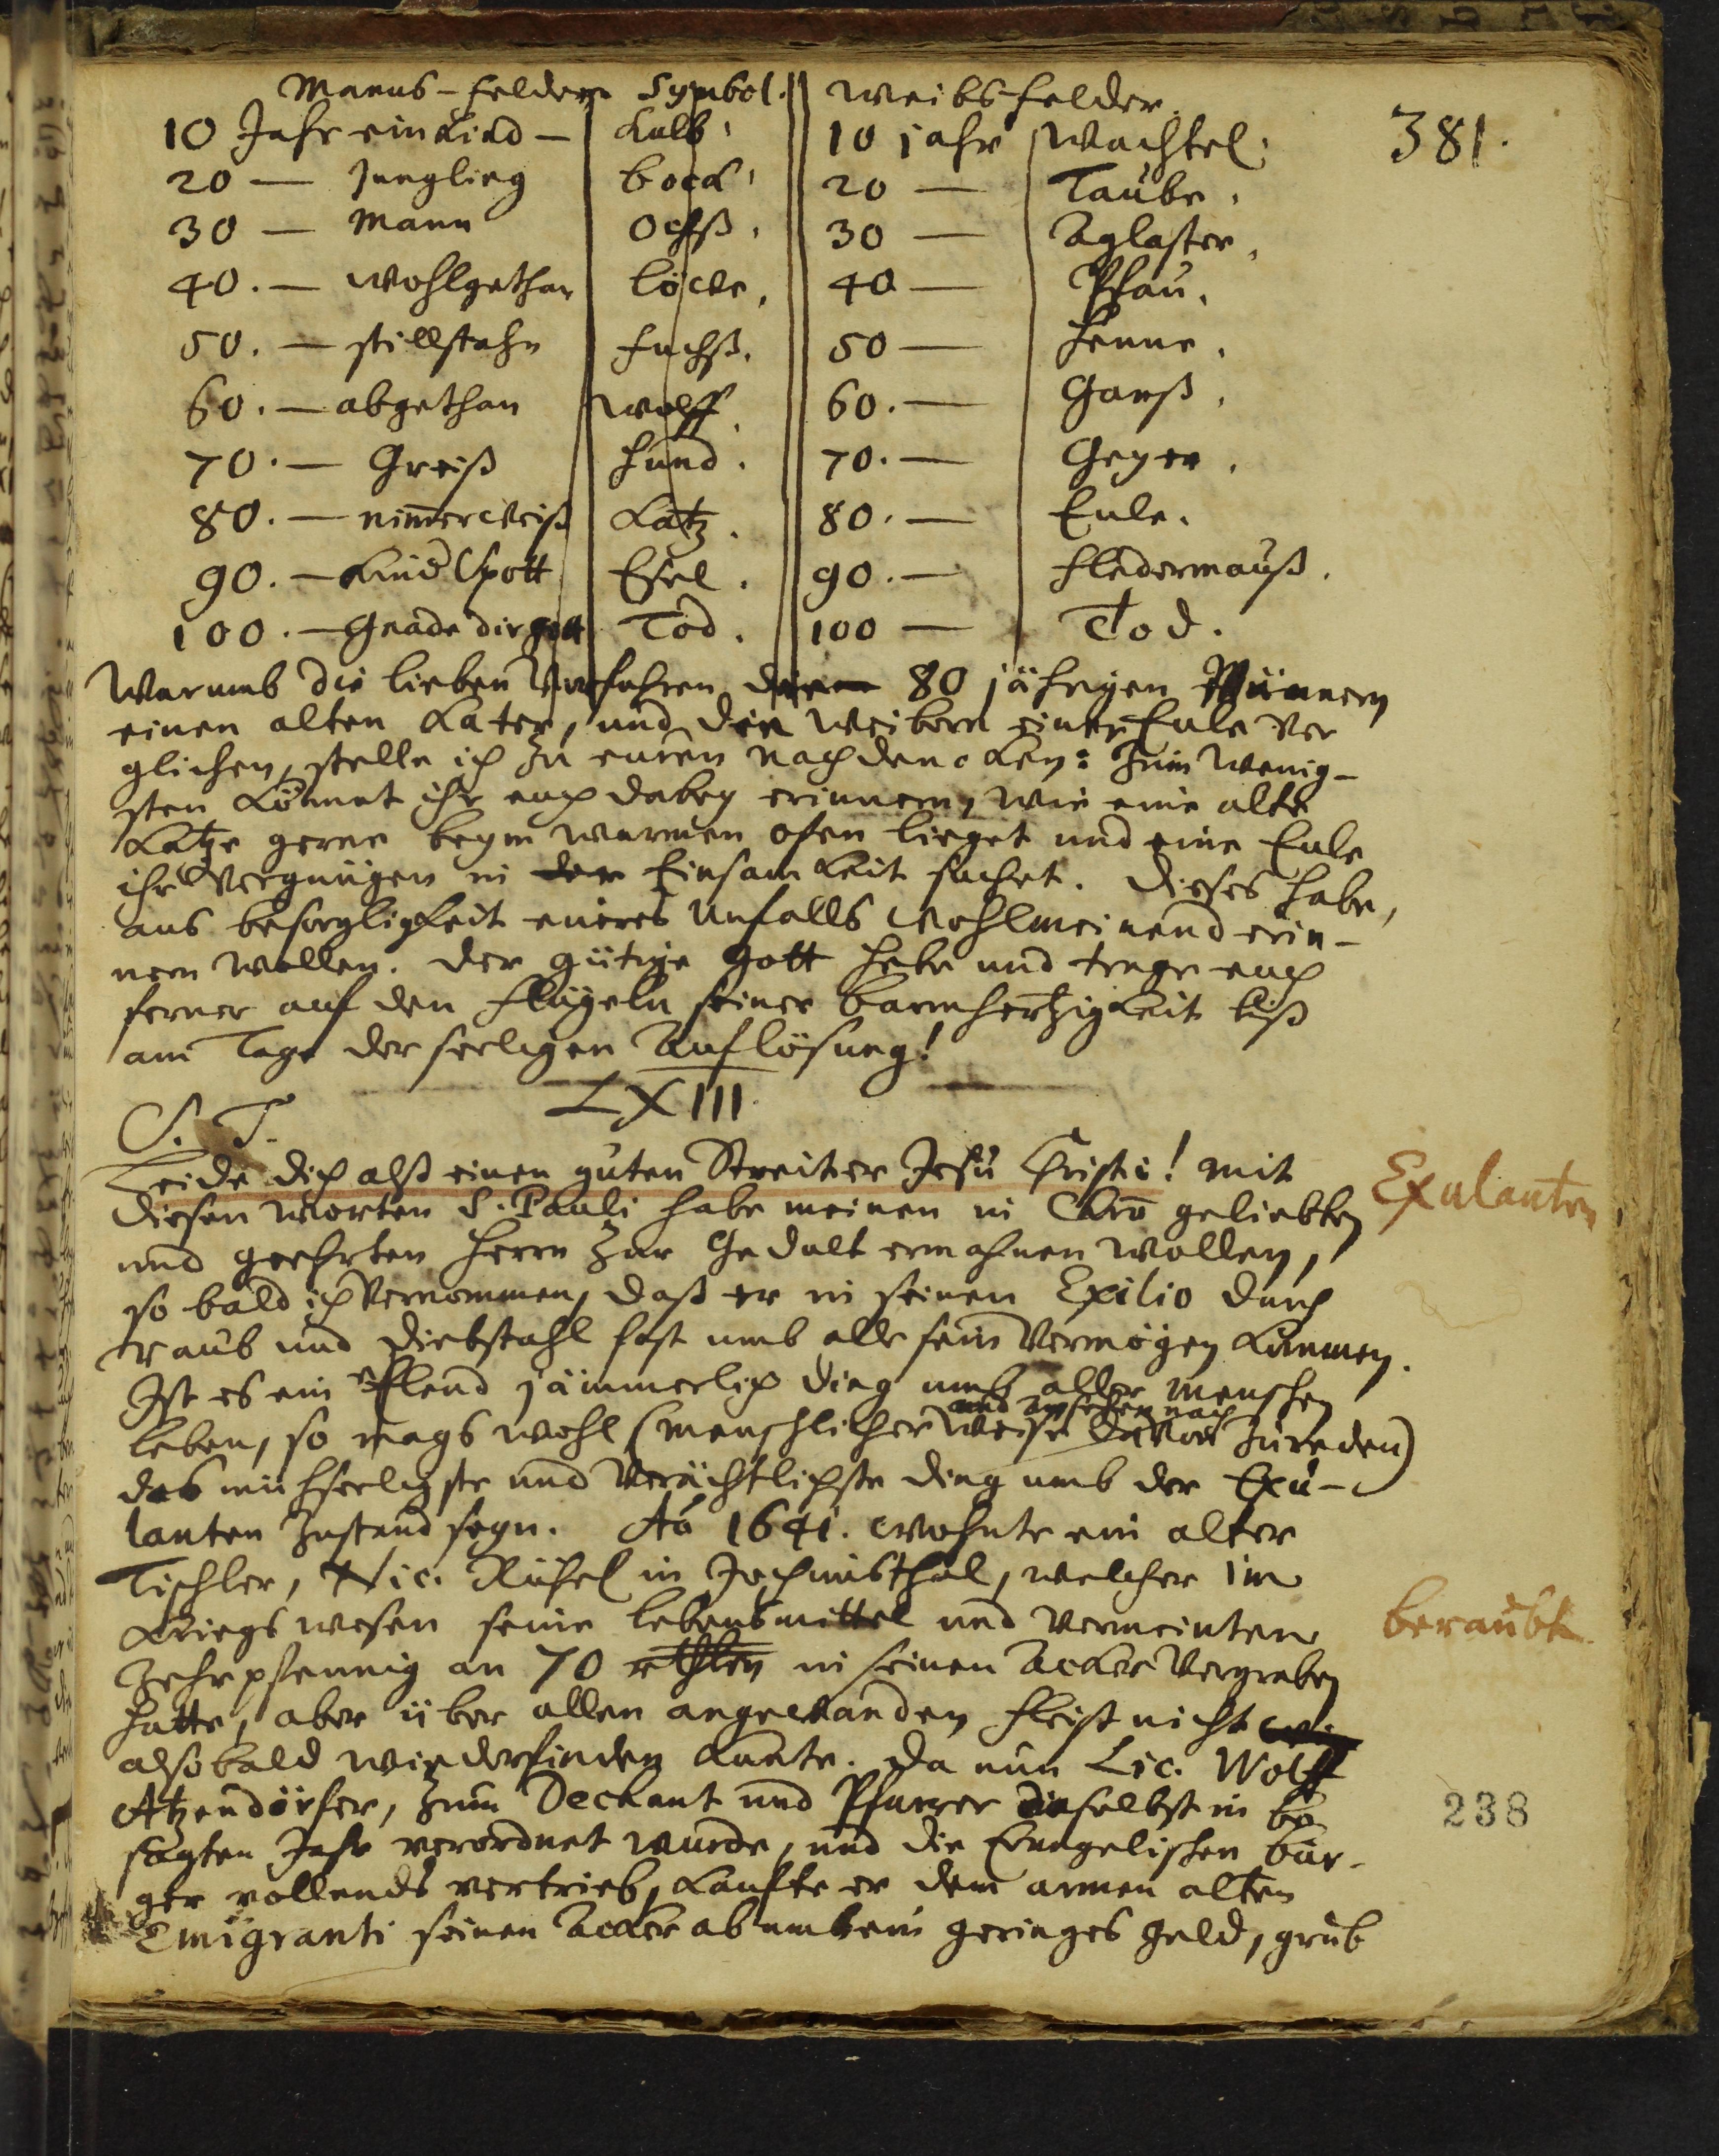 Manns-felder Symbol. Weibsfelder.
381.
10 Jahr ein Kind — Kalb. 10 jahr Wachtel.
20 — Jungling bock. 20 — Taube.
30 — Mann Ochß. 30 — Aglaster.
40. — wohlgethan Löwe. 40 — Pfau.
50. — stillstahn fuchß. 50 — Henne.
60. — abgethan wolff. 60. — Ganß.
70. — Greiß hund. 70. — Geyer.
80. — nimerweiß Katz. 80. — Eule.
90. — Kind Spott Esel. 90. — fledermauß.
100. — Gnade dir gott Tod. 100 — Tod.
Warumb die lieben Vorfahren 80 jährigen Männern
einen alten Kater, und den Weibern einer Eule ver
glichen, stelle ich zu euren nachdencken: Zum wenig-
sten könnet ihr euch dabey erinnern, wie eine alte
Katze gerne beym warmen ofen lieget und eine Eule
ihr Vergnügen in der Einsamkeit suchet. Dieses habe,
aus besorgligkeit eueres Unfalls wohlmeinend erin-
nern wollen. Der gütige Gott hebe und trage euch
ferner auf den flügeln seiner barmhertzigkeit biß
am Tage der seeligen Auflösung!
LXIII
S. T.
Leide dich alß einen guten Streiter Jesu Christi! mit
Exulanten
diesen Worten S. Pauli habe meinen in Chro geliebten
und geehrten Herrn zur Gedult ermahnen wollen,
so bald ich vernommen, daß er in seinen Exilio durch
raub und Diebstahl fast umb alle sein Vermögen kommen.
Ist es ein elend jämmerlich ding umb aller menschen
und ansehen nach
leben, so mags wohl (menschlicher weise davon zureden)
das mühseeligste und verächtlichste ding umb der Exu-
lanten Zustand seyn. Aõ 1641. wohnte ein alter
Tischler, Nic. in Jochimsthal, welcher im
Kriegswesen seine lebensmittel und vermeinten
beraubt.
Zehrpfennig an 70 rthlen in seinen Acker vergraben
hatte, aber über allen angewanden fleiß nicht
alsobald wiederfinden kunte. Da nun Lic. Wolff
Atzendörfer, zum Dechant und Pfarrer daselbst in be
238
sagten Jahr verordnet wurde, und die Evangelischen bür-
ger vollends vertrieb, kauffte er dem armen alten
Emigranti seinen Acker ab umb ein geringes geld, grub